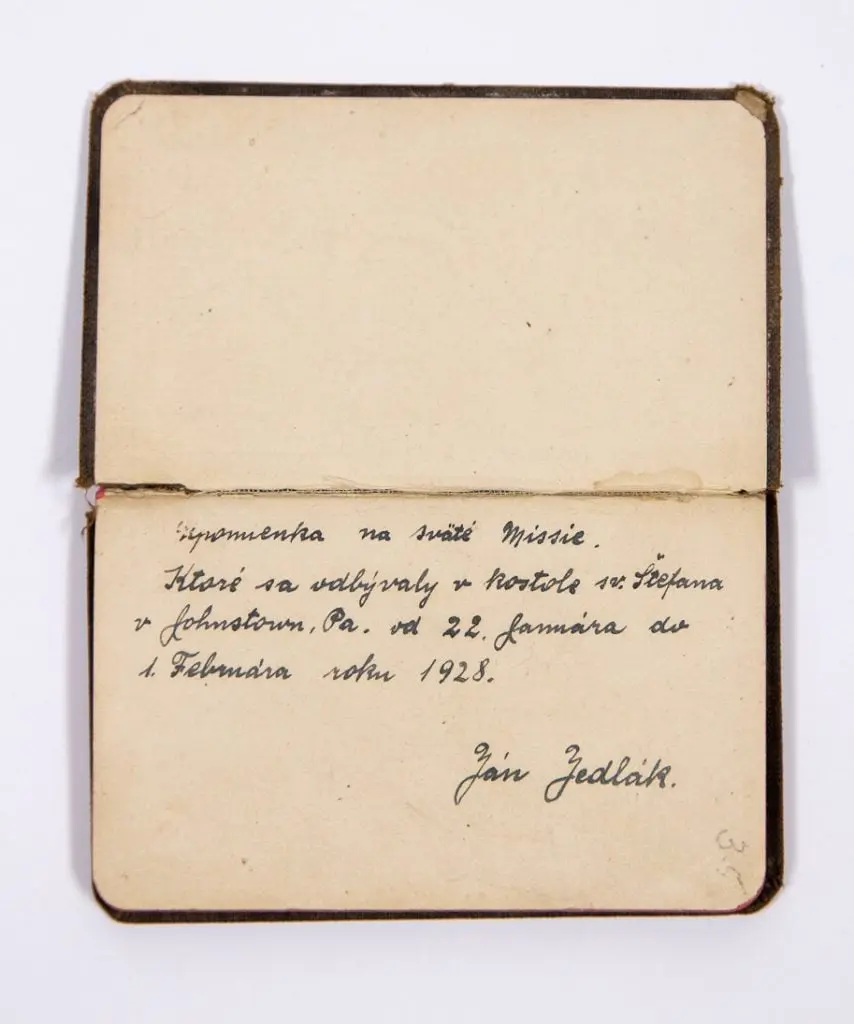 Upomienka na sväté Missie.
Ktoré sa odbývaly v kostole sv. Štefana
v Johnstown, Pa. od 22. Januára do
1. Februára roku 1928.
Ján Jedlák.